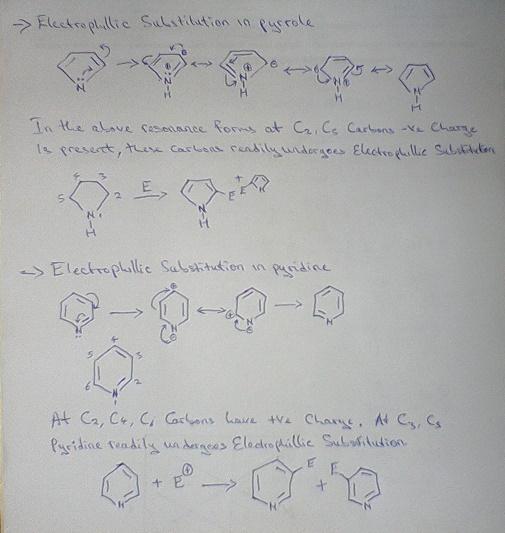 -> Electrophillic Substitution in pyrrole
N
N
H
N
H
N
H
N
H
In the above resonance forms at C2, C5 Carbons -ve Charge
is present, these carbons readily undergoes Electrophillic Substitution
4 3
5 2
N 1
H
E
N
H
E
+
E
N
-> Electrophillic Substitution in pyridine
N
N
N
N
4
5 3
6 2
N
1
At C2, C4, C6 Carbons have +ve Charge. At C3, C5
Pyridine readily undergoes Electrophillic Substitution
N + E⊕ -> N E + E N